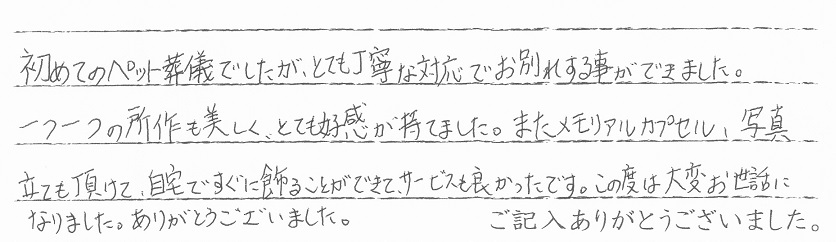 初めてのペット葬儀でしたが、とても丁寧な対応でお別れする事ができました。
一つ一つの所作も美しく、とても好感が持てました。またメモリアルカプセル、写真
立ても頂けて、自宅ですぐに飾ることができて、サービスも良かったです。この度は大変お世話に
なりました。ありがとうございました。
ご記入ありがとうございました。